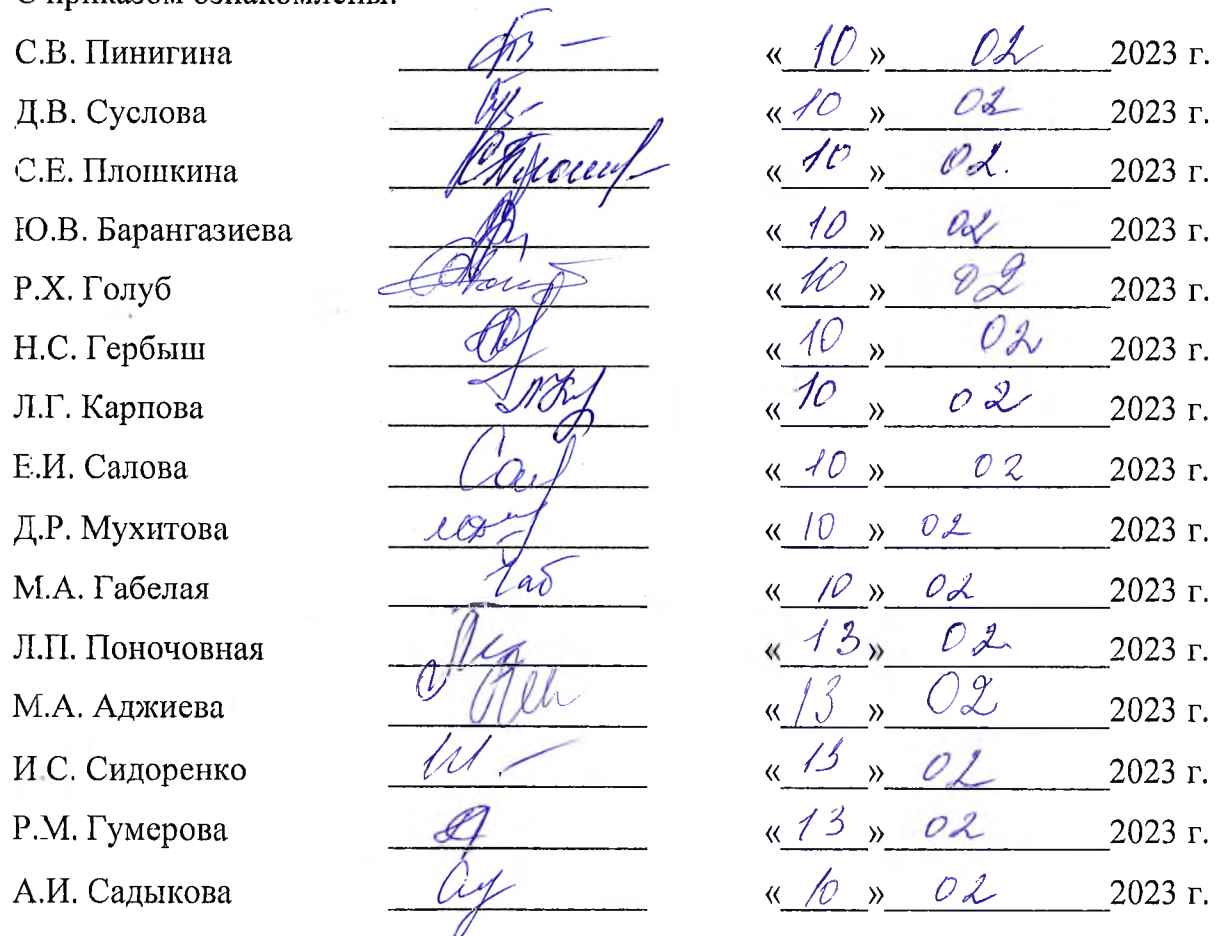 С приказом ознакомлены:
С.В. Пинигина « 10 » 02 2023 г.
Д.В. Суслова « 10 » 02 2023 г.
С.Е. Плошкина « 10 » 02. 2023 г.
Ю.В. Барангазиева « 10 » 02 2023 г.
Р.Х. Голуб « 10 » 02 2023 г.
Н.С. Гербыш « 10 » 02 2023 г.
Л.Г. Карпова « 10 » 02 2023 г.
Е.И. Салова « 10 » 02 2023 г.
Д.Р. Мухитова « 10 » 02 2023 г.
М.А. Габелая Габ « 10 » 02 2023 г.
Л.П. Поночовная « 13 » 02 2023 г.
М.А. Аджиева « 13 » 02 2023 г.
И.С. Сидоренко « 13 » 02 2023 г.
Р.М. Гумерова « 13 » 02 2023 г.
А.И. Садыкова « 10 » 02 2023 г.